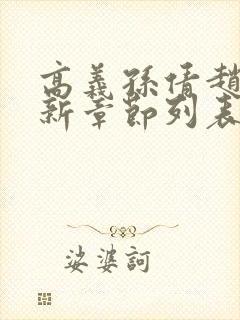 高義孫倩趙
新章節列表
娑婆訶